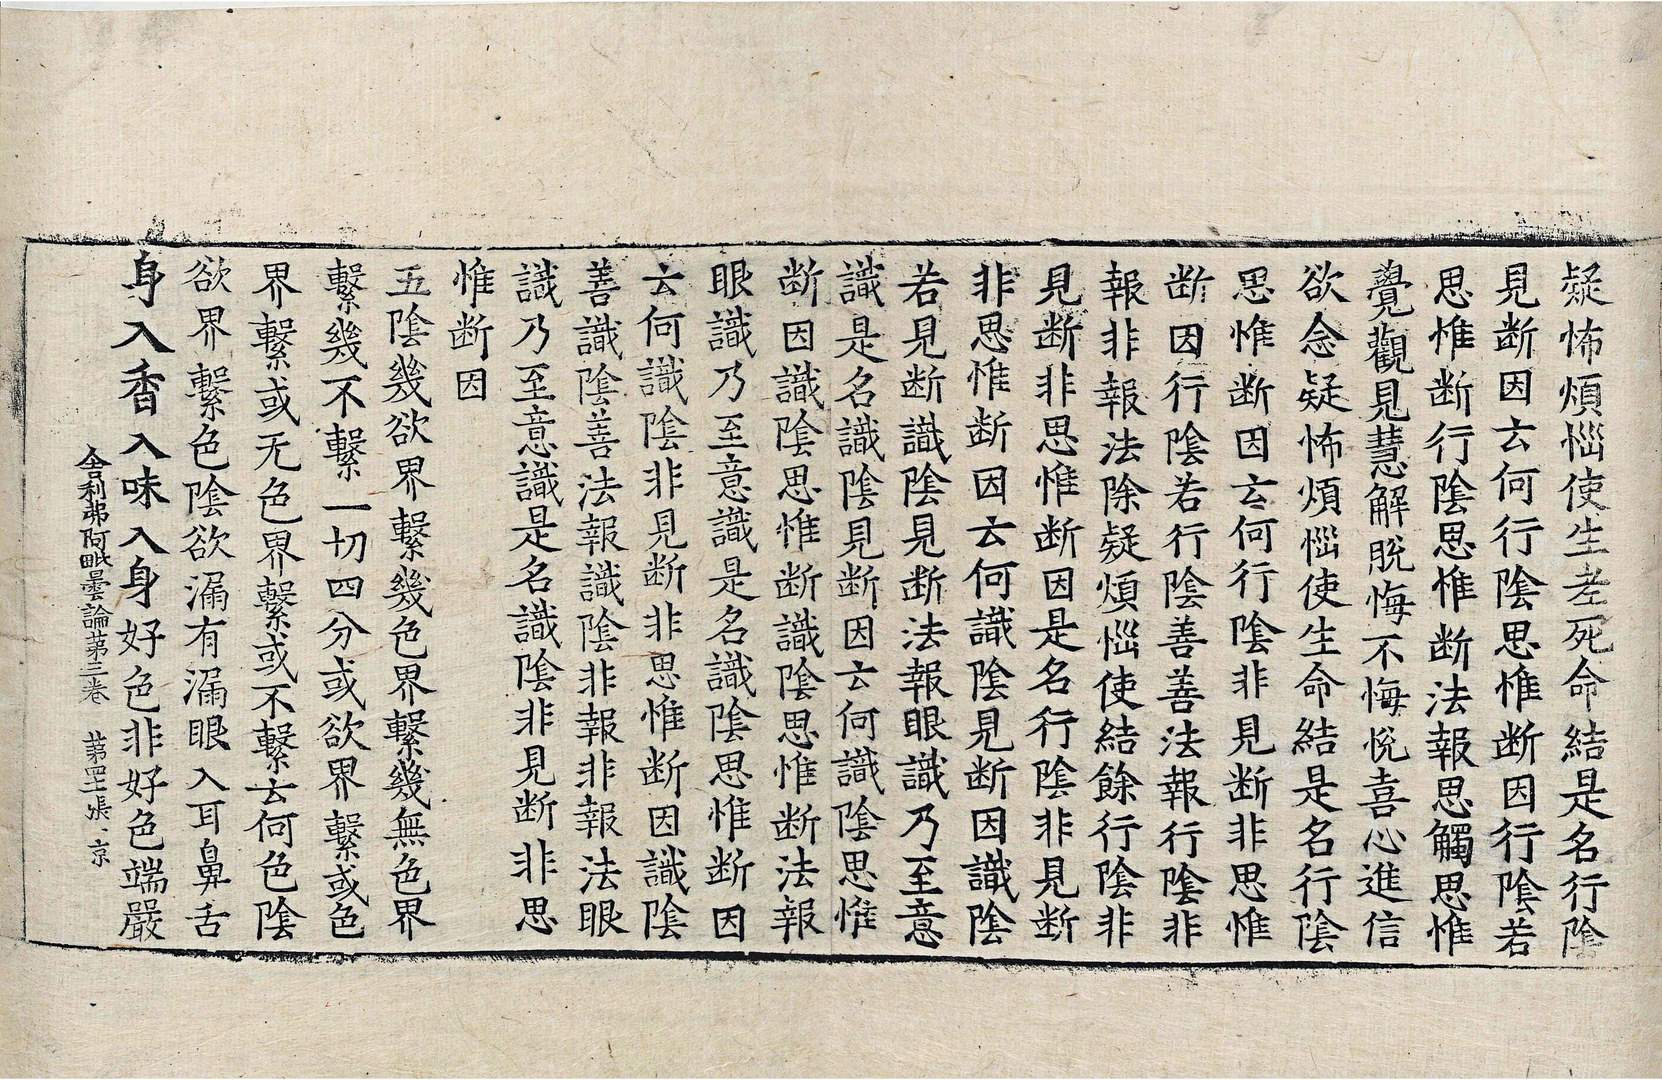 疑怖煩惱使生老死命結是名行陰
見断因云何行陰思惟断因行陰若
思惟断行陰思惟断法報思觸思惟
覺觀見慧解脫悔不悔悅喜心進信
欲念疑怖煩惱使生命結是名行陰
思惟断因云何行陰非見断非思惟
断因行陰若行陰善善法報行陰非
報非報法除疑煩惱使結餘行陰非
見断非思惟断因是名行陰非見断
非思惟断因云何識陰見断因識陰
若見断識陰見断法報眼識乃至意
識是名識陰見断因云何識陰思惟
断因識陰思惟断識陰思惟断法報
眼識乃至意識是名識陰思惟断因
云何識陰非見断非思惟断因識陰
善識陰善法報識陰非報非報法眼
識乃至意識是名識陰非見断非思
惟断因
五陰幾欲界繫幾色界繫幾無色界
繫幾不繫一切四分或欲界繫或色
界繫或无色界繫或不繫云何色陰
欲界繫色陰欲漏有漏眼入耳鼻舌
身入香入味入身好色非好色端嚴
舍利弗阿毗曇論第三卷 第四七張 京